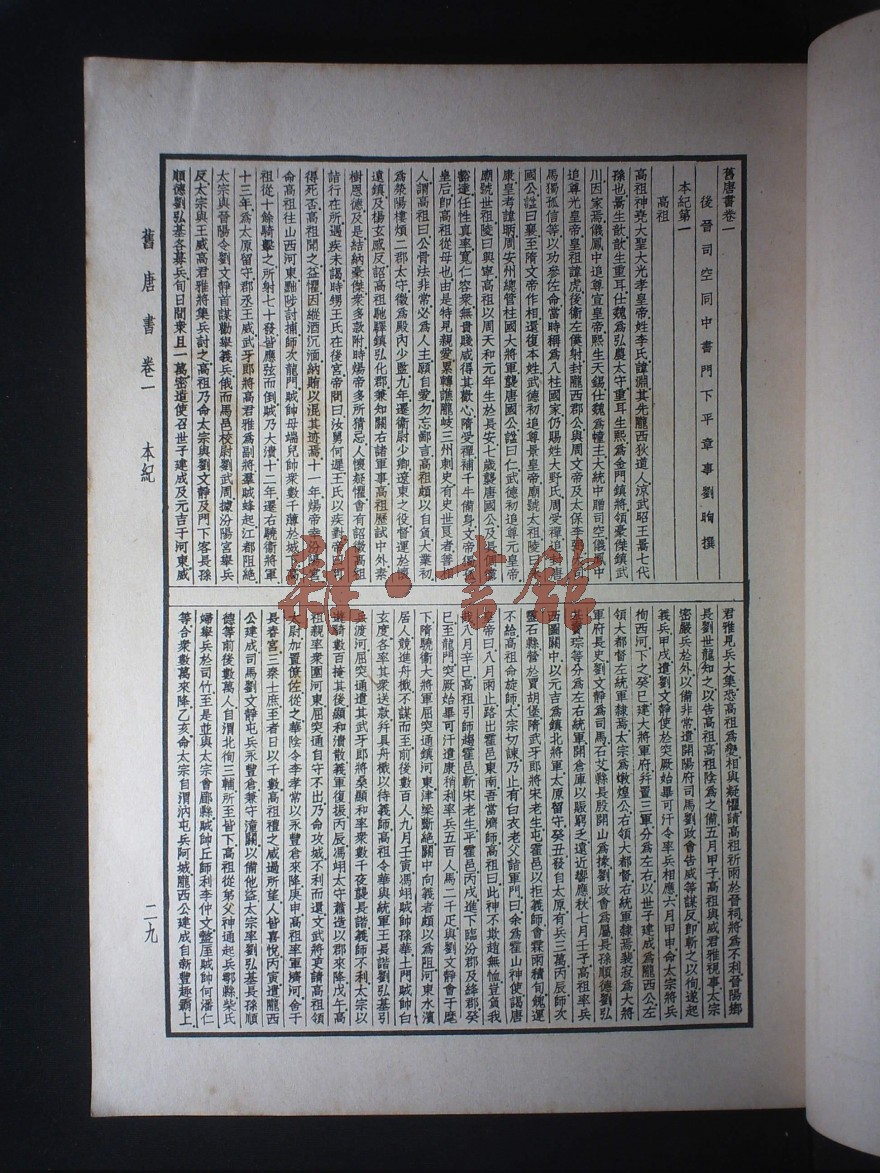 舊唐書卷一
後晉司空同中書門下平章事劉昫撰
本紀第一
高祖
高祖神堯大聖大光孝皇帝姓李氏諱淵其先隴西狄道人涼武昭王暠七代
孫也暠生歆歆生重耳仕魏為弘農太守重耳生熙為金門鎮將領豪傑鎮武
川因家焉儀鳳中追尊宣皇帝熙生天錫仕魏為幢主大統中贈司空儀鳳中
追尊光皇帝皇祖諱虎後魏左僕射封隴西郡公與周文帝及太保李弼大司
馬獨孤信等以功參佐命當時稱為八柱國家仍賜姓大野氏周受禪追封唐
國公諡曰襄至隋文帝作相還復本姓武德初追尊景皇帝廟號太祖陵曰永
康皇考諱昞周安州總管柱國大將軍襲唐國公諡曰仁武德初追尊元皇帝
廟號世祖陵曰興寧高祖以周天和元年生於長安七歲襲唐國公及長倜儻
豁達任性真率寬仁容眾無貴賤咸得其歡心隋受禪補千牛備身文帝獨孤
皇后即高祖從母也由是特見親愛累轉譙隴岐三州刺史有史世良者善相
人謂高祖曰公骨法非常必為人主願自愛勿忘鄙言高祖頗以自負大業初
為滎陽樓煩二郡太守徵為殿內少監九年遷衛尉少卿遼東之役督運於懷
遠鎮及楊玄感反詔高祖馳驛鎮弘化郡兼知關右諸軍事高祖歷試中外素
樹恩德及是結納豪傑眾多款附時煬帝多所猜忌人懷疑懼會有詔徵高祖
詣行在所遇疾未謁時甥王氏在後宮帝問曰汝舅何遲王氏以疾對帝曰可
得死否高祖聞之益懼因縱酒沉湎納賄以混其迹焉十一年煬帝幸汾陽宮
命高祖往山西河東黜陟討捕師次龍門賊帥母端兒帥眾數千薄於城下高
祖從十餘騎擊之所射七十發皆應弦而倒賊乃大潰十二年遷右驍衛將軍
十三年為太原留守郡丞王威武牙郎將高君雅為副將羣賊蜂起江都阻絕
太宗與晉陽令劉文靜首謀勸舉義兵俄而馬邑校尉劉武周據汾陽宮舉兵
反太宗與王威高君雅將集兵討之高祖乃命太宗與劉文靜及門下客長孫
順德劉弘基各募兵旬日間眾且一萬密遣使召世子建成及元吉于河東威
君雅見兵大集恐高祖為變相與疑懼請高祖祈雨於晉祠將為不利晉陽鄉
長劉世龍知之以告高祖高祖陰為之備五月甲子高祖與威君雅視事太宗
密嚴兵於外以備非常遣開陽府司馬劉政會告威等謀反即斬之以徇遂起
義兵甲戌遣劉文靜使於突厥始畢可汗令率兵相應六月甲申命太宗將兵
徇西河下之癸巳建大將軍府并置三軍分為左右以世子建成為隴西公左
領大都督左統軍隸焉太宗為燉煌公右領大都督右統軍隸焉裴寂為大將
軍府長史劉文靜為司馬石艾縣長殷開山為掾劉政會為屬長孫順德劉弘
基竇琮等分為左右統軍開倉庫以賑窮乏遠近響應秋七月壬子高祖率兵
西圖關中以元吉為鎮北將軍太原留守癸丑發自太原有兵三萬丙辰師次
靈石縣營於賈胡堡隋武牙郎將宋老生屯霍邑以拒義師會霖雨積旬餽運
不給高祖命旋師太宗切諫乃止有白衣老父詣軍門曰余為霍山神使謁唐
皇帝曰八月雨止路出霍邑東南吾當濟師高祖曰此神不欺趙無恤豈負我
哉八月辛巳高祖引師趨霍邑斬宋老生平霍邑丙戌進下臨汾郡及絳郡癸
巳至龍門突厥始畢可汗遣康稍利率兵五百人馬二千匹與劉文靜會于麾
下隋驍衛大將軍屈突通鎮河東津梁斷絕關中向義者頗以為阻河東水濱
居人競進舟檝不謀而至前後數百人九月壬寅馮翊賊帥孫華土門賊帥白
玄度各率其眾送款并具舟檝以待義師高祖令華與統軍王長諧劉弘基引
兵渡河屈突通遣其武牙郎將桑顯和率眾數千夜襲長諧義師不利太宗以
遊騎數百掩其後顯和潰散義軍復振丙辰馮翊太守蕭造以郡來降戊午高
祖親率眾圍河東屈突通自守不出乃命攻城不利而還文武將吏請高祖領
太尉加置僚佐從之華陰令李孝常以永豐倉來降庚申高祖率軍濟河舍于
長春宮三秦士庶至者日以千數高祖禮之咸過所望人皆喜悅丙寅遣隴西
公建成司馬劉文靜屯兵永豐倉兼守潼關以備他盜太宗率劉弘基長孫順
德等前後數萬人自渭北徇三輔所至皆下高祖從弟父神通起兵鄠縣柴氏
婦舉兵於司竹至是並與太宗會郿縣賊帥丘師利李仲文盩厔賊帥何潘仁
等合眾數萬來降乙亥命太宗自渭汭屯兵阿城隴西公建成自新豐趣霸上
舊唐書卷一 本紀 二九
雜·書館